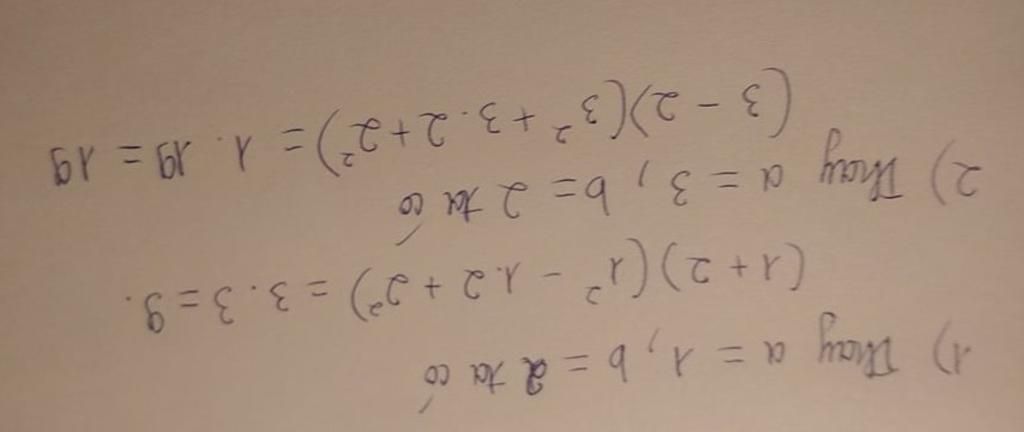 1) Thay a = 1, b = 2 ta có
(1 + 2) (1² - 1.2 + 2²) = 3 . 3 = 9.
2) Thay a = 3, b = 2 ta có
(3 - 2)(3² + 3 . 2 + 2²) = 1 . 19 = 19